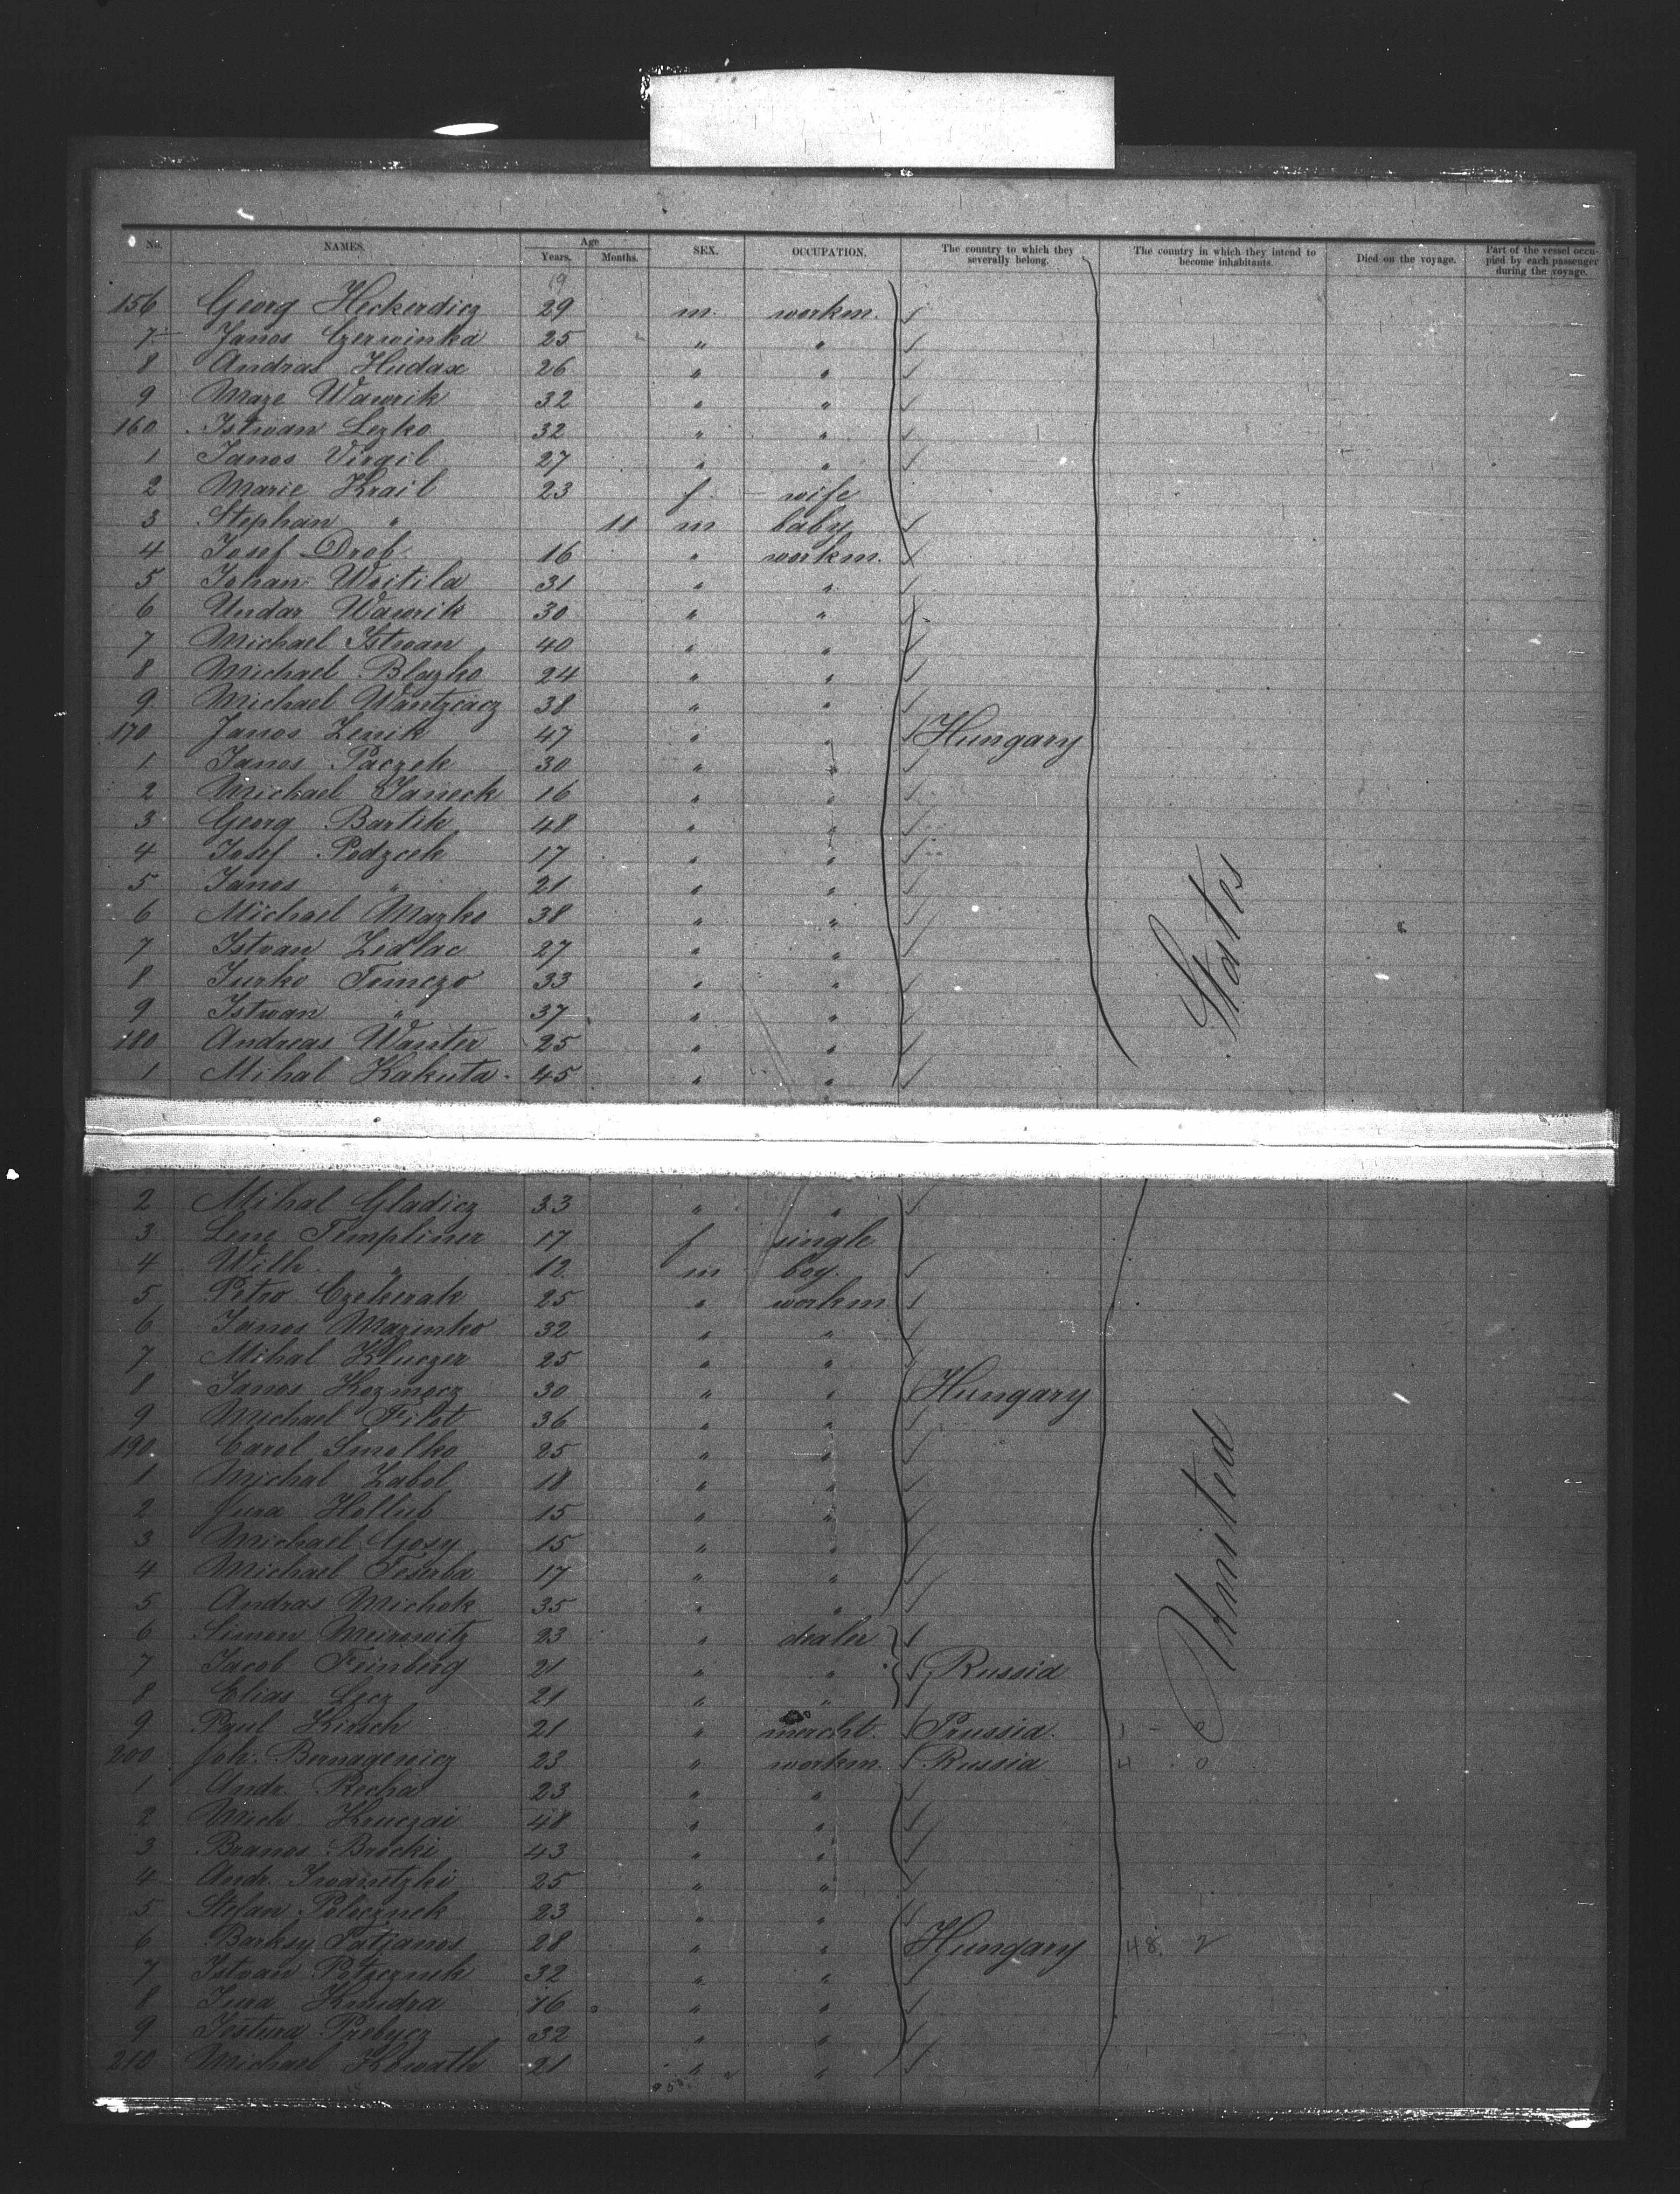 No. NAMES. Age Years. Months. SEX. OCCUPATION. The country to which they severally belong. The country in which they intend to become inhabitants. Died on the voyage. Part of the vessel occupied by each passenger during the voyage.
19
156 Georg Heckerdicz 29 m. workm.
7 Janos Czerwinka 25 " "
8 Andras Hudax 26 " "
9 Maze Wawrik 32 " "
160 Istwan Lezko 32 " "
1 Janos Virgil 27 " "
2 Marie Krail 23 f. wife
3 Stephan " 11 m baby
4 Josef Drob 16 " workm.
5 Johan Woitila 31 " "
6 Undar Wawrik 30 " "
7 Michael Istwan 40 " "
8 Michael Blazko 24 " "
9 Michael Wantzcacz 38 " "
170 Janos Zenik 47 " " Hungary
1 Janos Paczek 30 " "
2 Michael Janeck 16 " "
3 Georg Bartik 48 " "
4 Josef Podzcek 17 " "
5 Janos " 21 " "
6 Michael Mazko 38 " "
7 Istvan Zedlac 27 " "
8 Jurko Tomczo 33 " "
9 Istwan " 37 " "
180 Andreas Wanter 25 " "
1 Mihal Kakuta 45 " "
States
2 Mihal Gladicz 33 " "
3 Lene Templiner 17 f single
4 Wilh. " 12 m boy.
5 Petro Czekerak 25 " workm
6 Janos Mazinko 32 " "
7 Mihal Kluczer 25 " "
8 Janos Kozmocz 30 " " Hungary
9 Michael Filot 36 " "
190 Carol Smolko 25 " "
1 Michal Zabol 18 " "
2 Jura Hollub 15 " "
3 Michael Gosy 15 " "
4 Michael Feserba 17 " "
5 Andras Michok 35 " "
6 Simon Meirowitz 23 " dealer
7 Jacob Feinberg 21 " " Russia
8 Elias Lecz 21 " "
9 Paul Kirsch 21 " mercht. Prussia.
200 Joh. Bernagewicz 23 " workm. Russia 4 0
1 Andr. Recha 23 " "
2 Mich. Kruczai 48 " "
3 Branos Brocki 43 " "
4 Andr. Iwanetzki 25 " "
5 Stefan Polocznek 23 " "
6 Barksy Tatjanos 28 " " Hungary 48. 2
7 Istvan Potzcznek 32 " "
8 Jura Kmidra 16 " "
9 Jestura Prebycz 32 " "
210 Michael Howath 21 " "
United